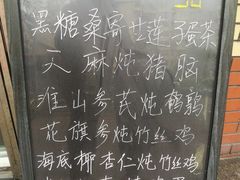 黑糖桑寄生莲子蛋茶
天麻炖猪脑
淮山参芪炖鹌鹑
花旗参炖竹丝鸡
海底椰杏仁炖竹丝鸡